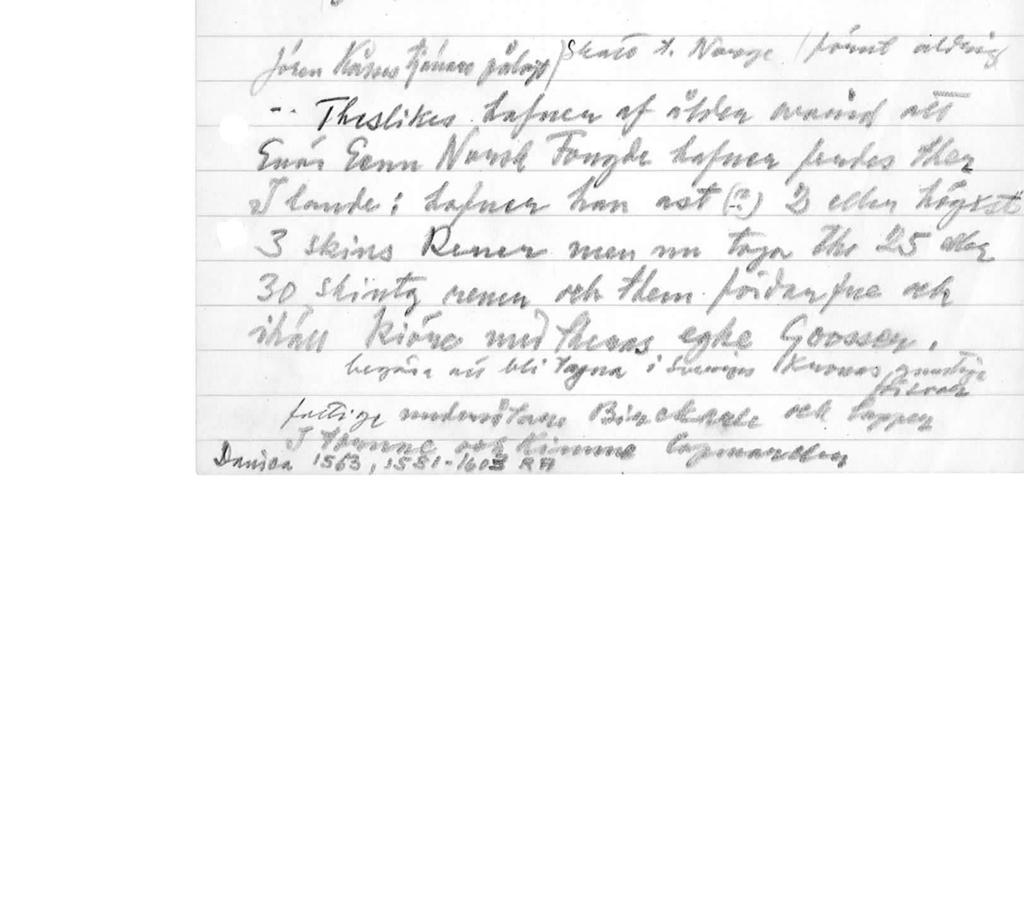 Jören Kåsses tjänare pålagt) Skatt t. Norge (förut aldrig
-- Theslikes hafuer af ålder warid att
Enär Eenn Norsk Fougde hafuer fardes ther
I lande: hafuer han ast (?) 2 eller högxst
3 skins Rener men nu taga the 25 eller
30 skintz renen och them fördarfue och
ihäll kiöre med theras eghe Goosser.
begära att bli tagna i Sveriges Kronas gunstige
försvar
fattige undersåtare Birckarle och lapper
I Torne och Kimme lapmarcker
Danica 1563, 1581-1603 RA